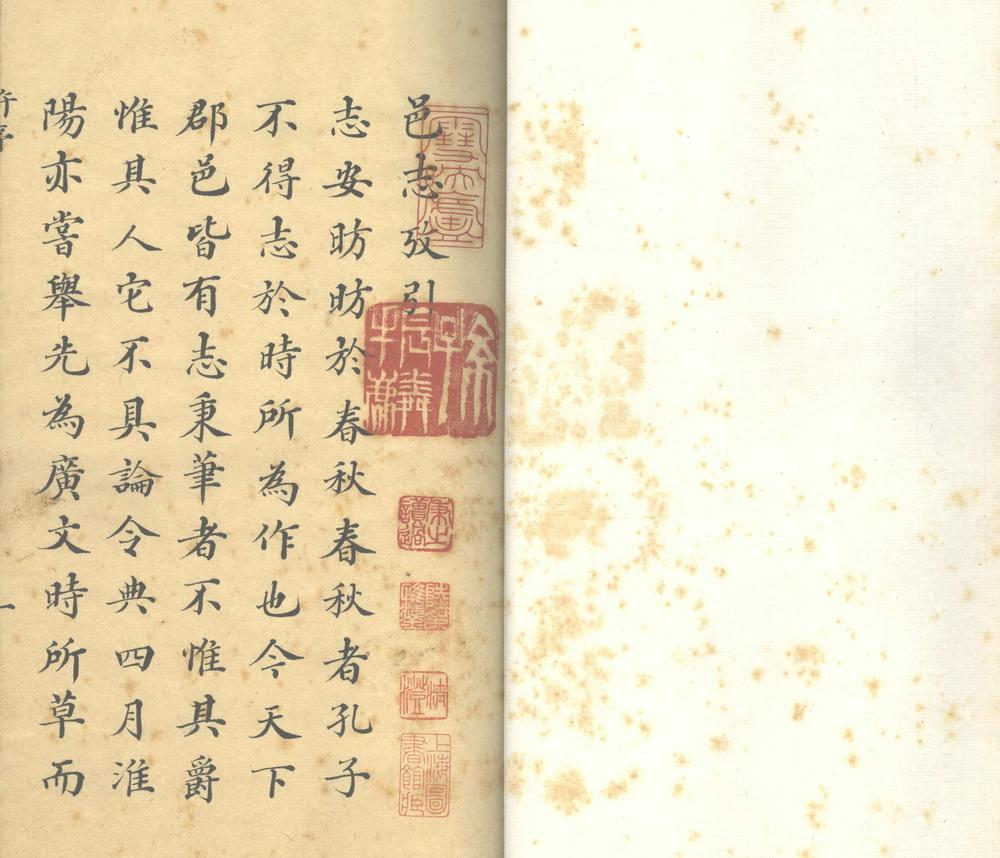 邑志攷引
志安昉昉於春秋春秋者孔子
不得志於時所為作也今天下
郡邑皆有志秉筆者不惟其爵
惟其人它不具論令典四月淮
陽亦嘗舉先為廣文時所草而
上海圖書館藏